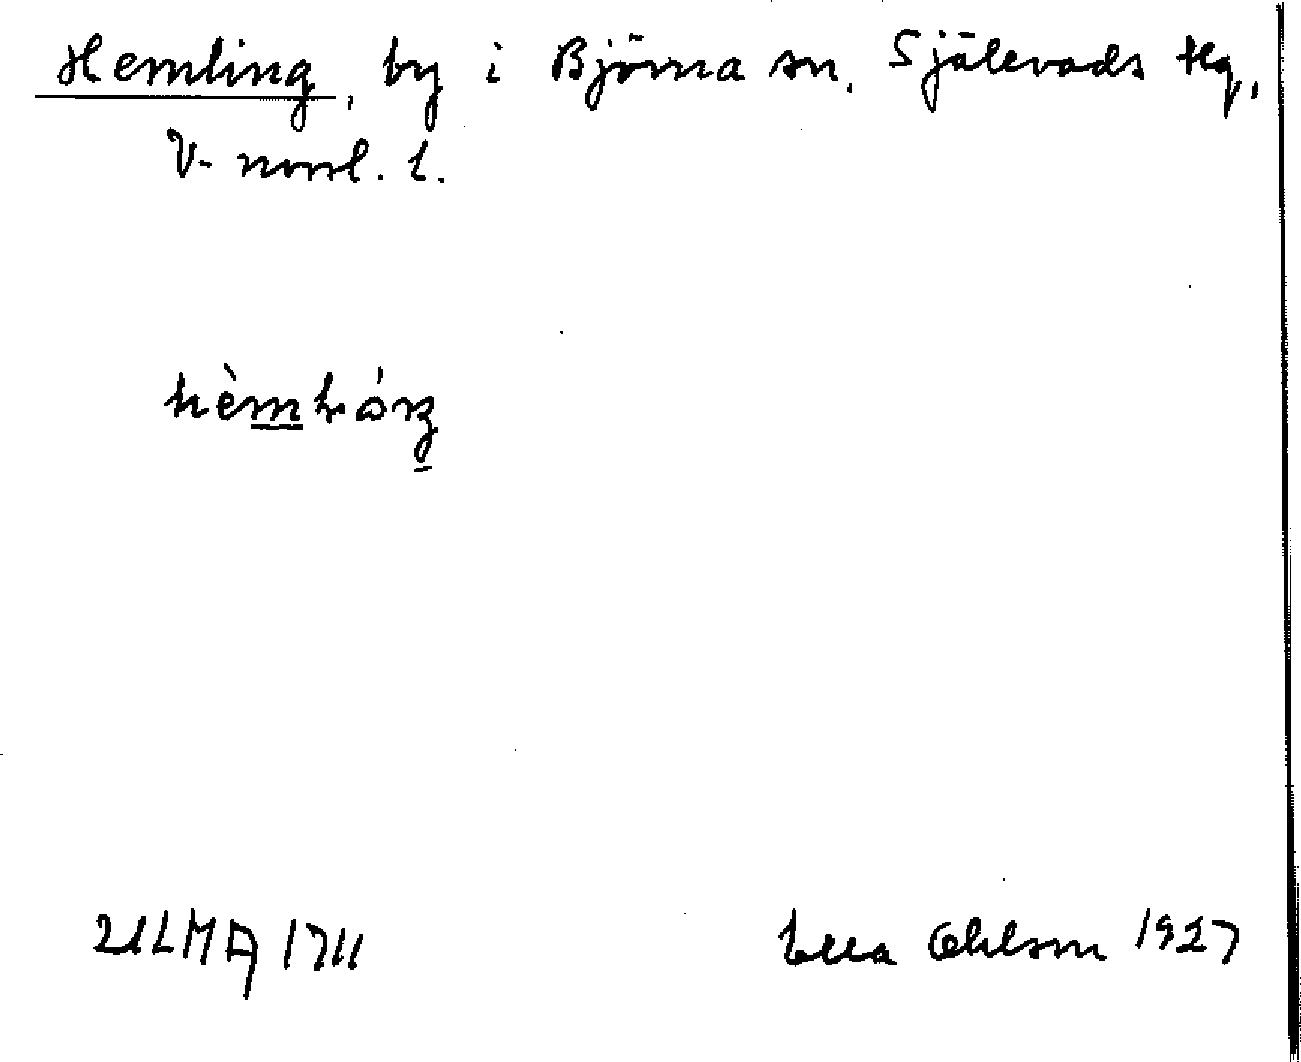 Hemling, by i Björna sn, Själevads tg,
V-norrl. l.
ULMA 1711
Ella Ohlson 1927